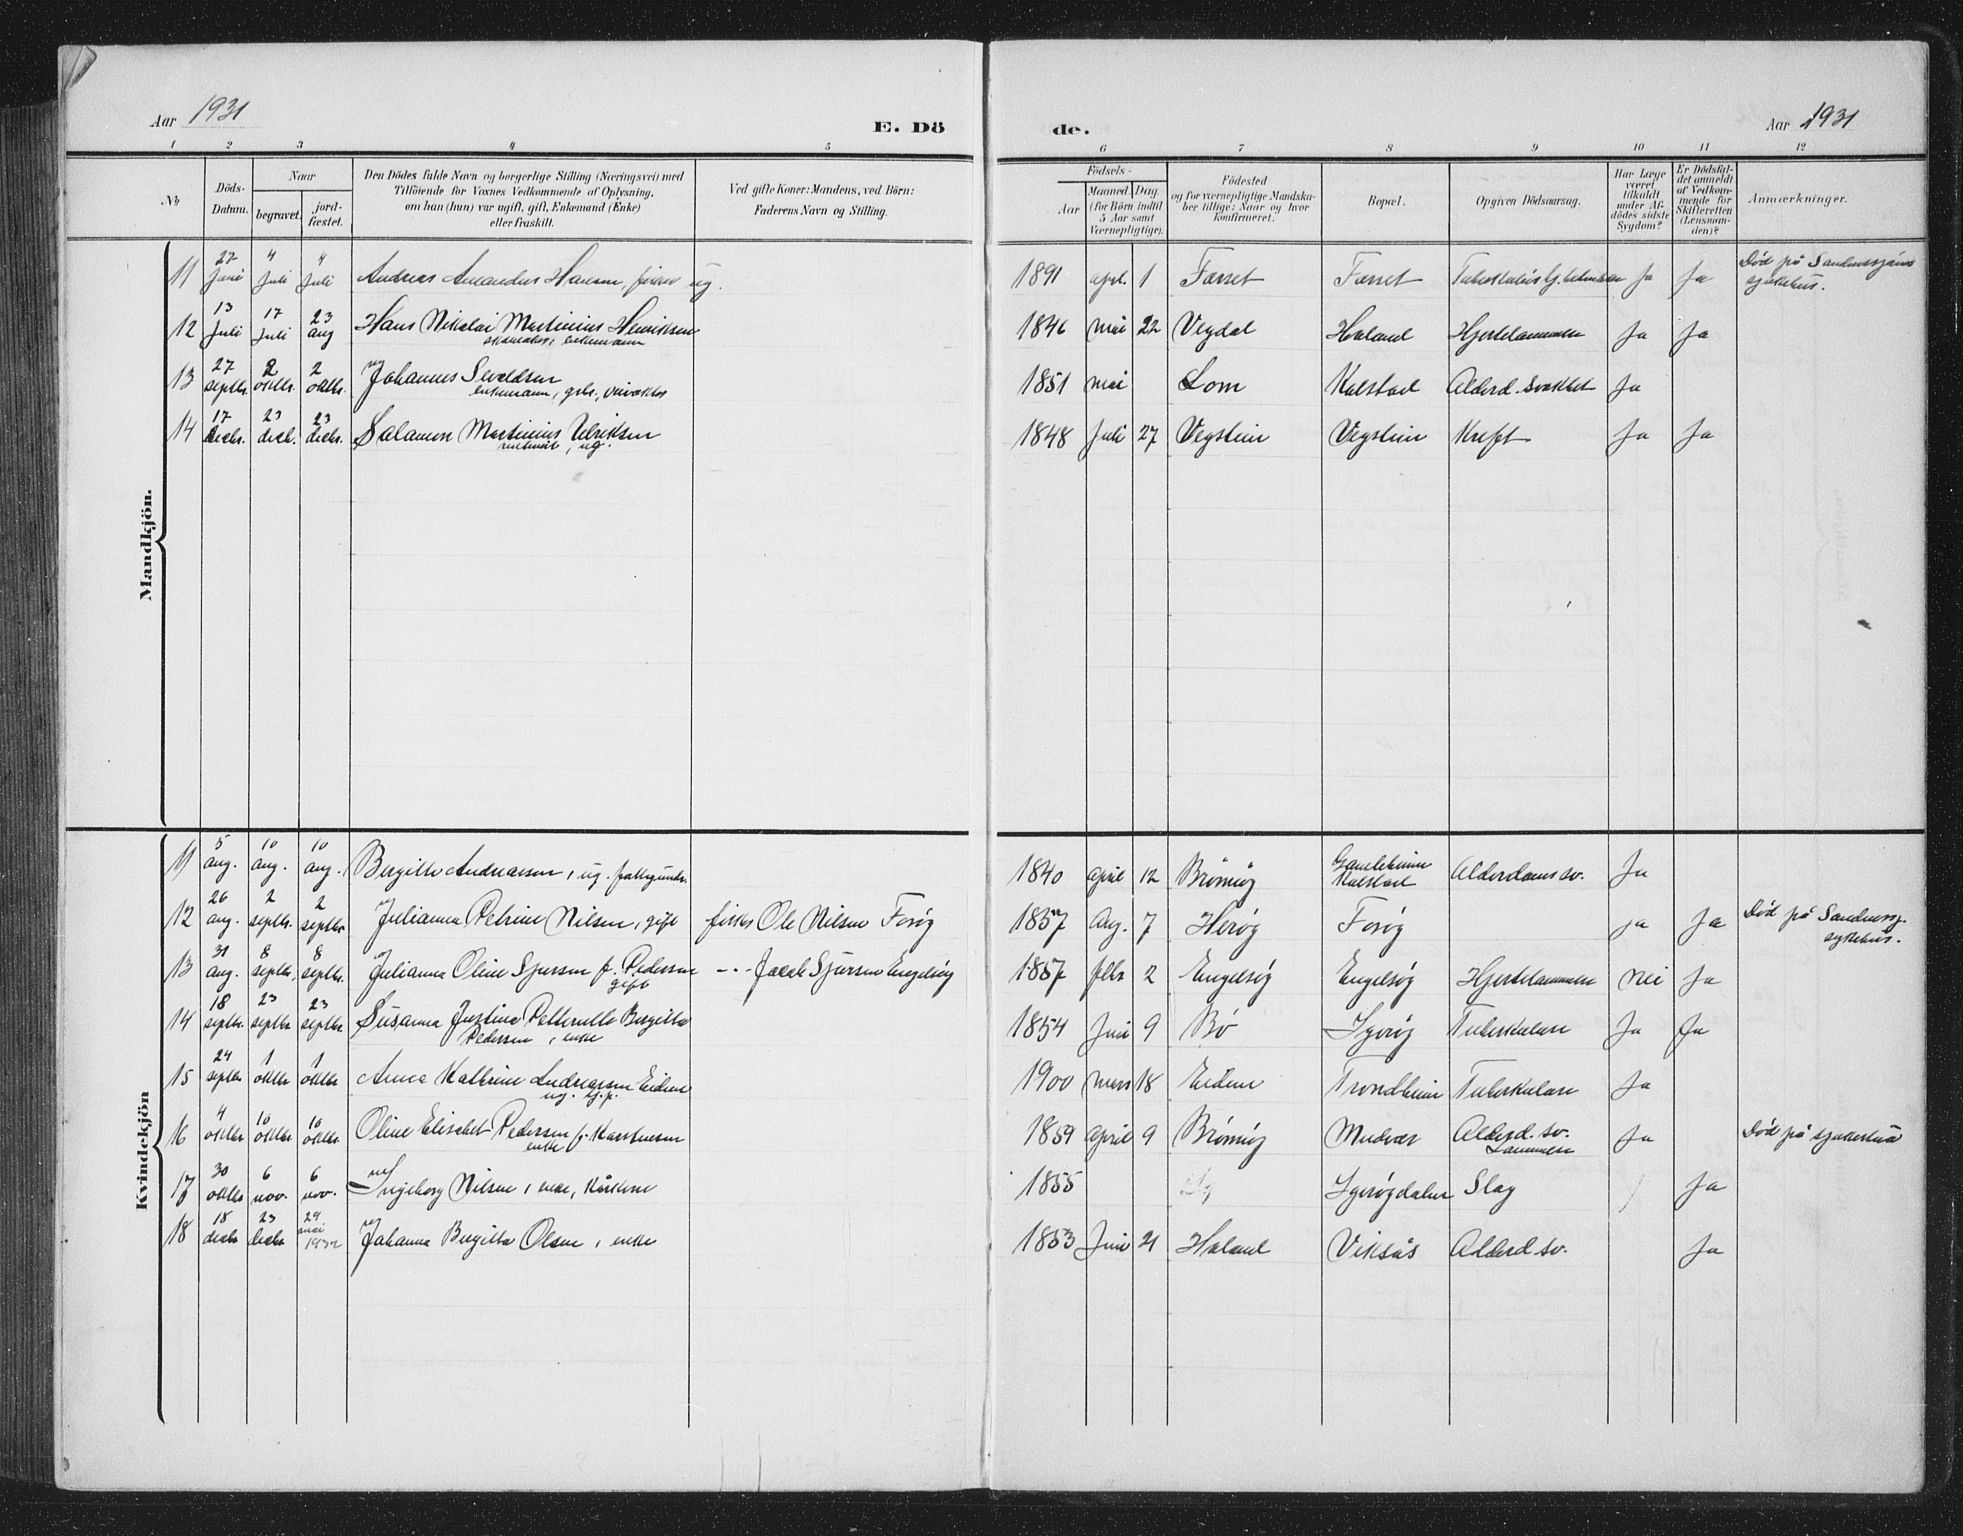 Aar 1931
E. Dö
de.
Aar 1931
1 2 3 4 5 6 7 8 9 10 11 12
No
Döds-Datum.
Naar
begravet.
jord-fæstet.
Den Dödes fulde Navn og borgerlige Stilling (Næringsvei) med
Tilföiende for Voxnes Vedkommende af Oplysning,
om han (hun) var ugift, gift, Enkemand (Enke)
eller fraskilt.
Ved gifte Koner: Mandens, ved Börn:
Faderens Navn og Stilling.
Födsels-
Aar
Maaned. Dag.
(for Börn indtil
5 Aar samt
Værnepligtige).
Födested
og for værnepligtige Mandska-
ber tillige: Naar og hvor
konfirmeret.
Bopæl.
Opgiven Dödsaarsag.
Har Læge
været
tilkaldt
under Af-
dödes sidste
Sygdom?
Er Dödsfal-
det anmeldt
af Vedkom-
mende for
Skifteretten
(Lensman-
den)?
Anmærkninger.
Mandkjön.
11 27 Juni 4 Juli 4 Juli Andreas Amandus Hansen, fisker ug. 1891 apr. 1 Færset Færset Ja Ja Død på Sandnessjøens
sykehus.
12 13 Juli 17 Juli 23 aug Hans Nikolai Martinius Henriksen 1846 mai 22 Vegdal Haland Hjertelammelse Ja Ja
enkemann
13 27 septbr. 2 oktbr. 2 oktbr. Johannes Sevaldsen 1851 mai Lom Kalstad Alderd. svakhet Ja
enkemann, gbr.,
14 17 decbr. 23 decb. 23 decbr. Salamon Martinius Ulriksen 1848 Juli 27 Vegstein Vegstein Kreft Ja Ja
ug.
Kvindekjön
11 5 aug. 10 aug. 10 aug. Bergitte Andreassen, ug. 1840 april 12 Brønnøy Kalstad Alderdoms sv. Ja
12 26 aug. 2 septbr. 2 septbr Julianna Petrine Nilsen, gift fisker Ole Nilsen Forøy 1857 Aug. 7 Herøy Forøy Ja Ja Død på Sandnessj.
sykehus.
13 31 aug. 8 septbr. 8 septbr. Julianna Oline Sjursen f. Pedersen - " - Jacob Sjursen Engelsøy 1857 febr 2 Engelsøy Engelsøy Hjertelammelse Nei Ja
gift
14 18 septbr. 23 septbr 23 septbr Susanna Justine Petternelle Bergitte 1854 Juni 9 Bø Tuberkulose Ja Ja
Pedersen, enke
15 24 septbr 1 oktbr 1 oktbr Anna Kathrine Andreassen Eidem 1900 mars 18 Eidem Trondheim Tuberkulose Ja
ug.
16 4 oktbr 10 oktbr 10 oktbr Oline Elisabet Pedersen f. Karstensen 1859 april 9 Brønnøy Alderd. sv. Ja Død på sykestua
enke Lammelse
17 30 oktbr 6 nov. 6 nov. Ingeborg Nilsen, enke, 1855 Slag Ja
18 18 decbr 23 decbr 29 mai 1932 Johanna Bergitte Olsen, enke 1853 Juni 21 Haland Viksås Alderd sv. Ja